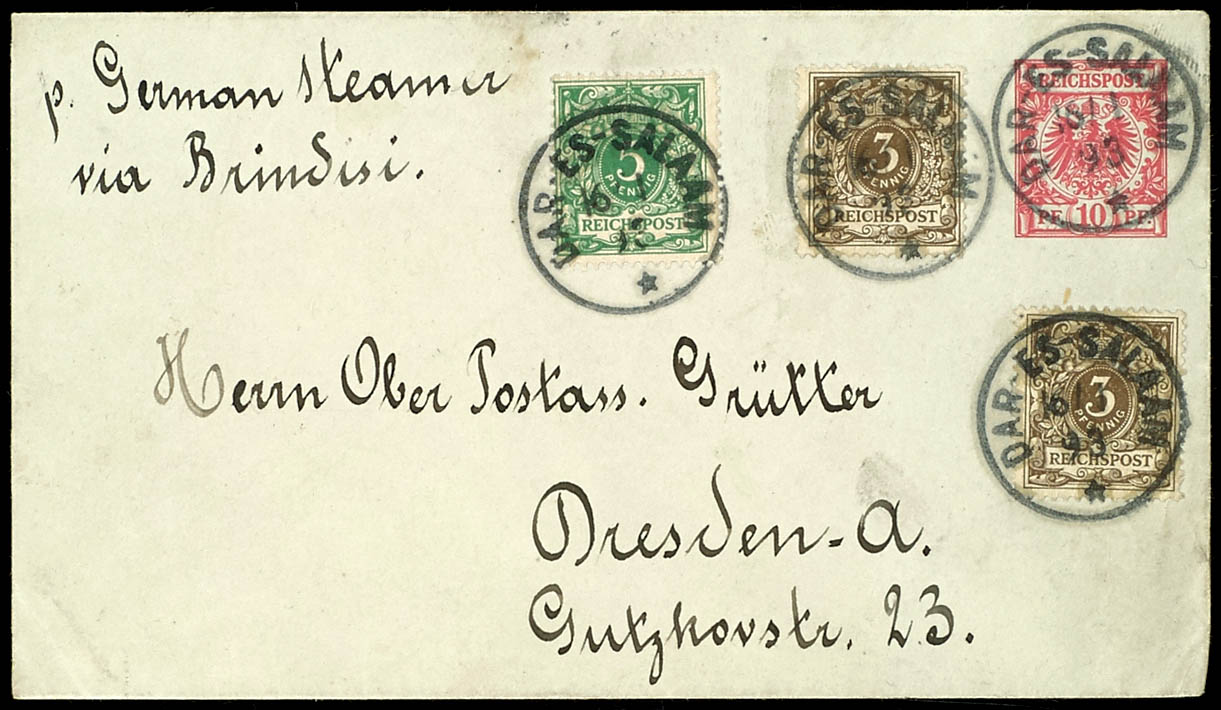 p. German Steamer
via Brindisi.
5
PFENNIG
REICHSPOST
DAR-ES-SALAAM
3
PFENNIG
REICHSPOST
DAR-ES-SALAAM
REICHSPOST
PF. 10 PF.
DAR-ES-SALAAM
93
Herrn Ober Postass. Grütter
3
PFENNIG
REICHSPOST
DAR-ES-SALAAM
93
Dresden-A.
Gutzkovstr. 23.